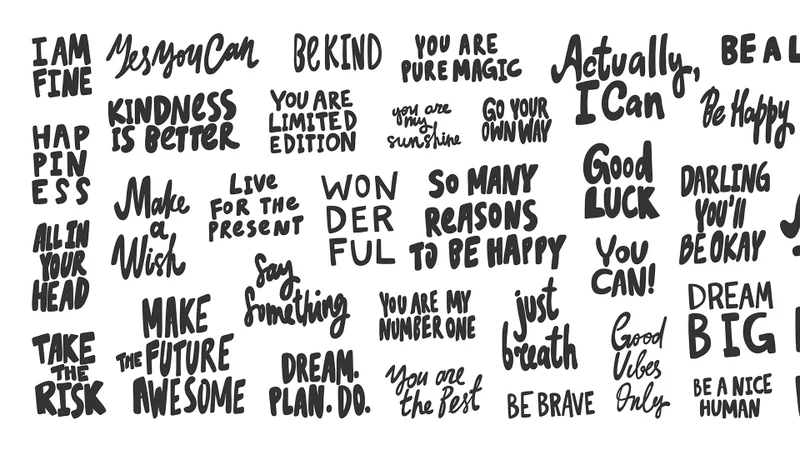 I AM
FINE
Yes you Can
BE KIND
YOU ARE
PURE MAGIC
Actually,
I Can
BE A L
KINDNESS
IS BETTER
YOU ARE
LIMITED
EDITION
you are
my
sunshine
GO YOUR
OWN WAY
Be Happy
HAP
PIN
ESS
Make
a
Wish
LIVE
FOR THE
PRESENT
WON
DER
FUL
SO MANY
REASONS
TO BE HAPPY
Good
LUCK
DARLING
YOU'll
BE OKAY
ALL IN
YOUR
HEAD
Say
Something
YOU
CAN!
TAKE
THE
RISK
MAKE
THE FUTURE
AWESOME
DREAM.
PLAN. DO.
YOU ARE MY
NUMBER ONE
You are
the Best
just
breath
BE BRAVE
Good
Vibes
Only
DREAM
BIG
BE A NICE
HUMAN